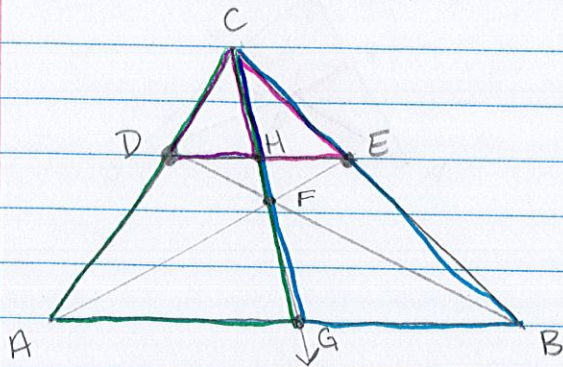 C
D H E
F
A G B